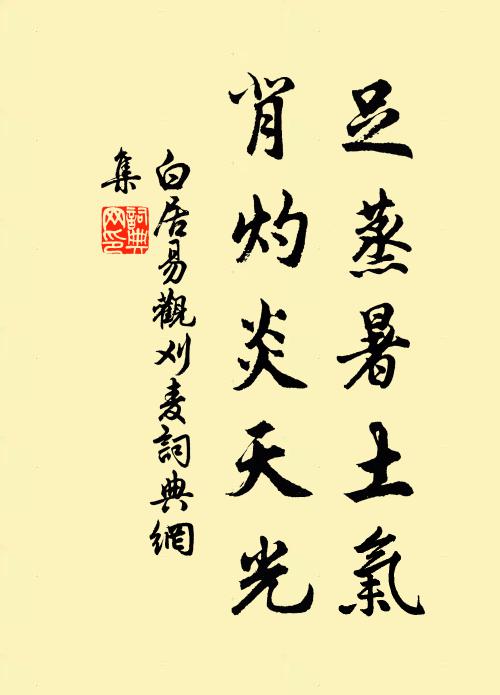 足蒸暑土氣
背灼炎天光
白居易觀刈麦詞典網
集
詞典网印